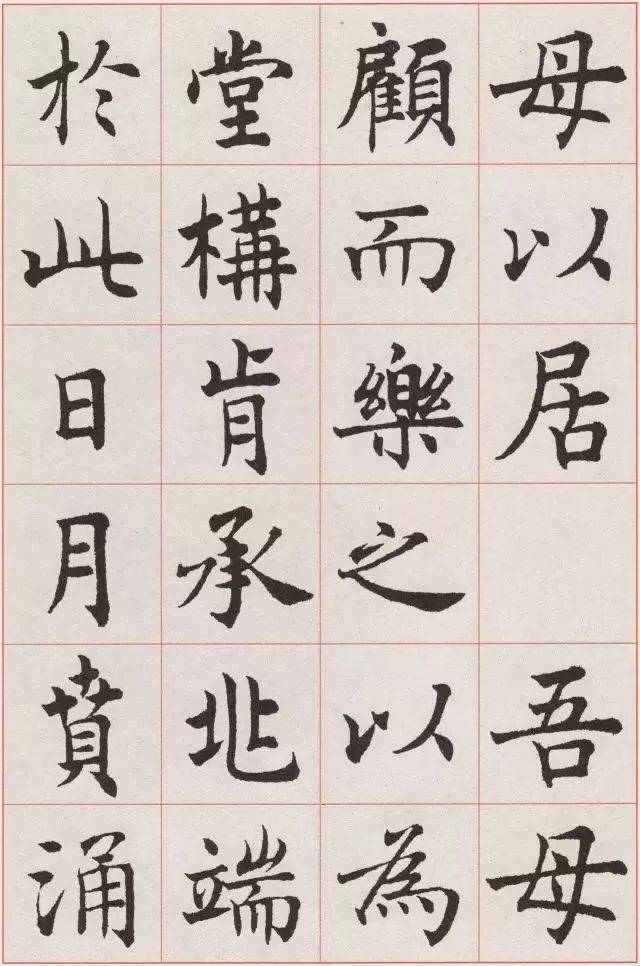 母以居 吾母
顧而樂之以為
堂構肯承端
於此日月賁涌